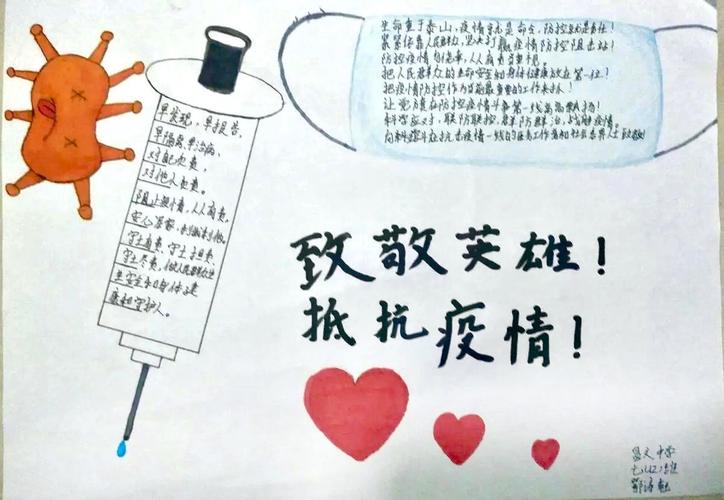 生命重于泰山，疫情就是命令，防控就是责任！
紧紧依靠人民群众，坚决打赢疫情防控阻击战！
防控疫情
人人有责
把人民群众的生命安全和身体健康放在第一位！
把疫情防控作为当前最重要的工作来抓！
让党旗在防控疫情斗争第一线高高飘扬！
科学应对，联防联控，群防群治，战胜疫情。
向科学斗在抗击疫情一线的医务工作者和社会各界人士致敬！
早发现，早报告，
早隔离，早治病，
对自己负责，
对他人负责。
阻止疫情，人人有责，
安心居家
守土有责，守土担责，
守土尽责，做人民群众生
命安全和身体健
康的守护人。
致敬英雄！
抵抗疫情！
中学